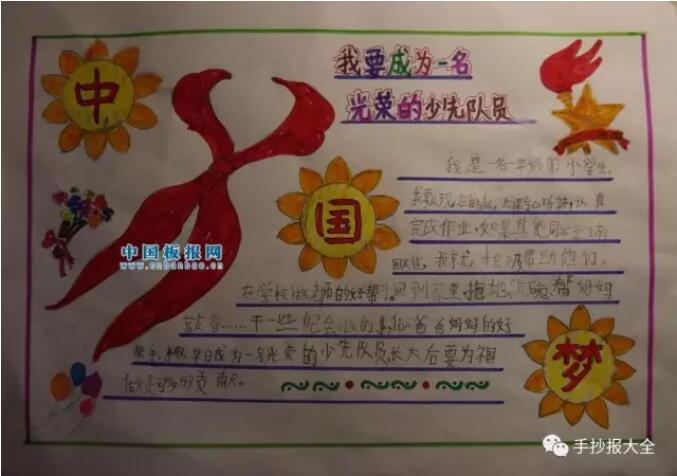 中
我要成为一名
光荣的少先队员
国
我是一名一年级的小学生。
我要从现在做起,上课专心听讲,认真
完成作业,如果其他同学学习有
困难,我就积极帮助他们。
在学校做老师的好帮手,回到家里拖地、洗碗、帮妈妈
敲背……干一些自己会做的事,做爸爸妈妈的好
帮手,早日成为一名光荣的少先队员,长大后要为祖
做贡献。
中国板报网
www.cnbanbao.cn
梦
手抄报大全